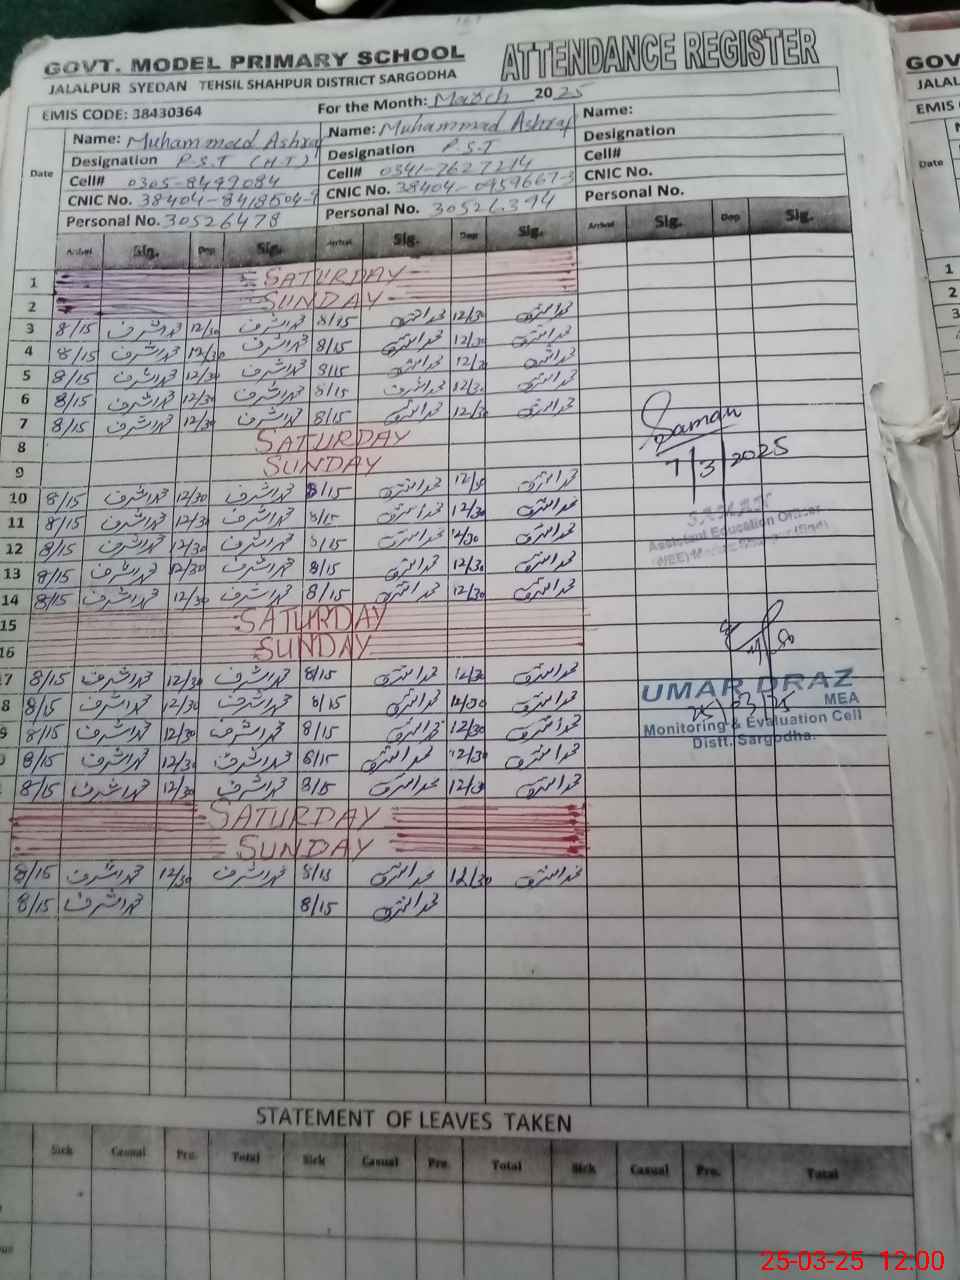 GOVT. MODEL PRIMARY SCHOOL ATTENDANCE REGISTER
JALALPUR SYEDAN TEHSIL SHAHPUR DISTRICT SARGODHA
EMIS CODE: 38430364 For the Month: March 2025
Date Name: Muhammad Ashraf Name: Muhammad Ashraf Name:
Designation P.S.T (H.T) Designation P.S.T Designation
Cell# 0305-8499084 Cell# 0341-7627214 Cell#
CNIC No. 38404-8418504-9 CNIC No. 38404-0959667-3 CNIC No.
Personal No. 30526478 Personal No. 30526394 Personal No.
Arrival Sig. Dep Sig. Arrival Sig. Dep Sig. Arrival Sig. Dep Sig.
1 SATURDAY
2 SUNDAY
3 8/15 محمد اشرف 12/30 محمد اشرف 8/15 محمد اشرف 12/30 محمد اشرف
4 8/15 محمد اشرف 12/30 محمد اشرف 8/15 محمد اشرف 12/30 محمد اشرف
5 8/15 محمد اشرف 12/30 محمد اشرف 8/15 محمد اشرف 12/30 محمد اشرف
6 8/15 محمد اشرف 12/30 محمد اشرف 8/15 محمد اشرف 12/30 محمد اشرف
7 8/15 محمد اشرف 12/30 محمد اشرف 8/15 محمد اشرف 12/30 محمد اشرف
8 SATURDAY
Saman
9 SUNDAY
7/3/2025
10 8/15 محمد اشرف 12/30 محمد اشرف 8/15 محمد اشرف 12/30 محمد اشرف
11 8/15 محمد اشرف 12/30 محمد اشرف 8/15 محمد اشرف 12/30 محمد اشرف
SAMAN
Assistant Education Officer
12 8/15 محمد اشرف 12/30 محمد اشرف 8/15 محمد اشرف 12/30 محمد اشرف
13 8/15 محمد اشرف 12/30 محمد اشرف 8/15 محمد اشرف 12/30 محمد اشرف
14 8/15 محمد اشرف 12/30 محمد اشرف 8/15 محمد اشرف 12/30 محمد اشرف
15 SATURDAY
16 SUNDAY
7 8/15 محمد اشرف 12/30 محمد اشرف 8/15 محمد اشرف 12/30 محمد اشرف
UMAR DRAZ
MEA
8 8/15 محمد اشرف 12/30 محمد اشرف 8/15 محمد اشرف 12/30 محمد اشرف
25/03/25
Monitoring & Evaluation Cell
Distt. Sargodha.
9 8/15 محمد اشرف 12/30 محمد اشرف 8/15 محمد اشرف 12/30 محمد اشرف
8/15 محمد اشرف 12/30 محمد اشرف 8/15 محمد اشرف 12/30 محمد اشرف
8/15 محمد اشرف 12/30 محمد اشرف 8/15 محمد اشرف 12/30 محمد اشرف
SATURDAY
SUNDAY
8/15 محمد اشرف 12/30 محمد اشرف 8/15 محمد اشرف 12/30 محمد اشرف
8/15 محمد اشرف 8/15 محمد اشرف
STATEMENT OF LEAVES TAKEN
Sick Casual Pre. Total Sick Casual Pre. Total Sick Casual Pre. Total
GOV
JALAL
EMIS
Date
1
2
3
25-03-25 12:00